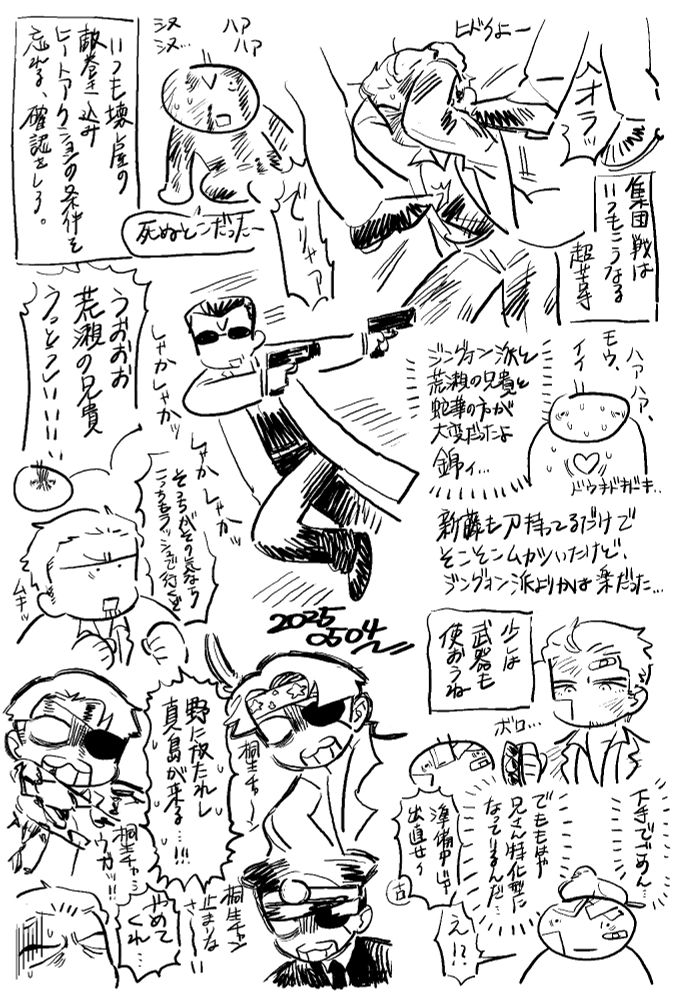 ヒドイよー
オラッ
集団戦は
いつもこうなる
超苦手
でりゃァ
ハァ
ハァ
シヌ
シヌ…
死ぬとこだったー
いつも壊し屋の
敵巻き込み
ヒートアクションの条件を
忘れる、確認をしろ。
ハァハァ、
モウ、
イイ
ドウキドキドキ…
ジングォン派と
荒瀬の兄貴と
蛇華の方が
大変だったよ
錦ィ…
新藤も刀持ってるだけで
そこそこムカツいたけど、
ジングォン派よりかは楽だった…
しゃかしゃかッ
しゃかしゃかッ
うおおお
荒瀬の兄貴
うっとうしいいいい
そっちがその気なら
こっちもラッシュで行くぞ
ムキッ
2025
0504
少しは
武器も
使おうね
ボロ…
下手でごめん…
でももはや
兄さん特化型に
なっているんだ…
準備中じゃ
出直せィ
古
え!?
桐生チャン
野に放たれし
真島が来る…!!!
桐生チャン
ウガッ!!
桐生チャン
止まりな
さーい
やめて
くれ…